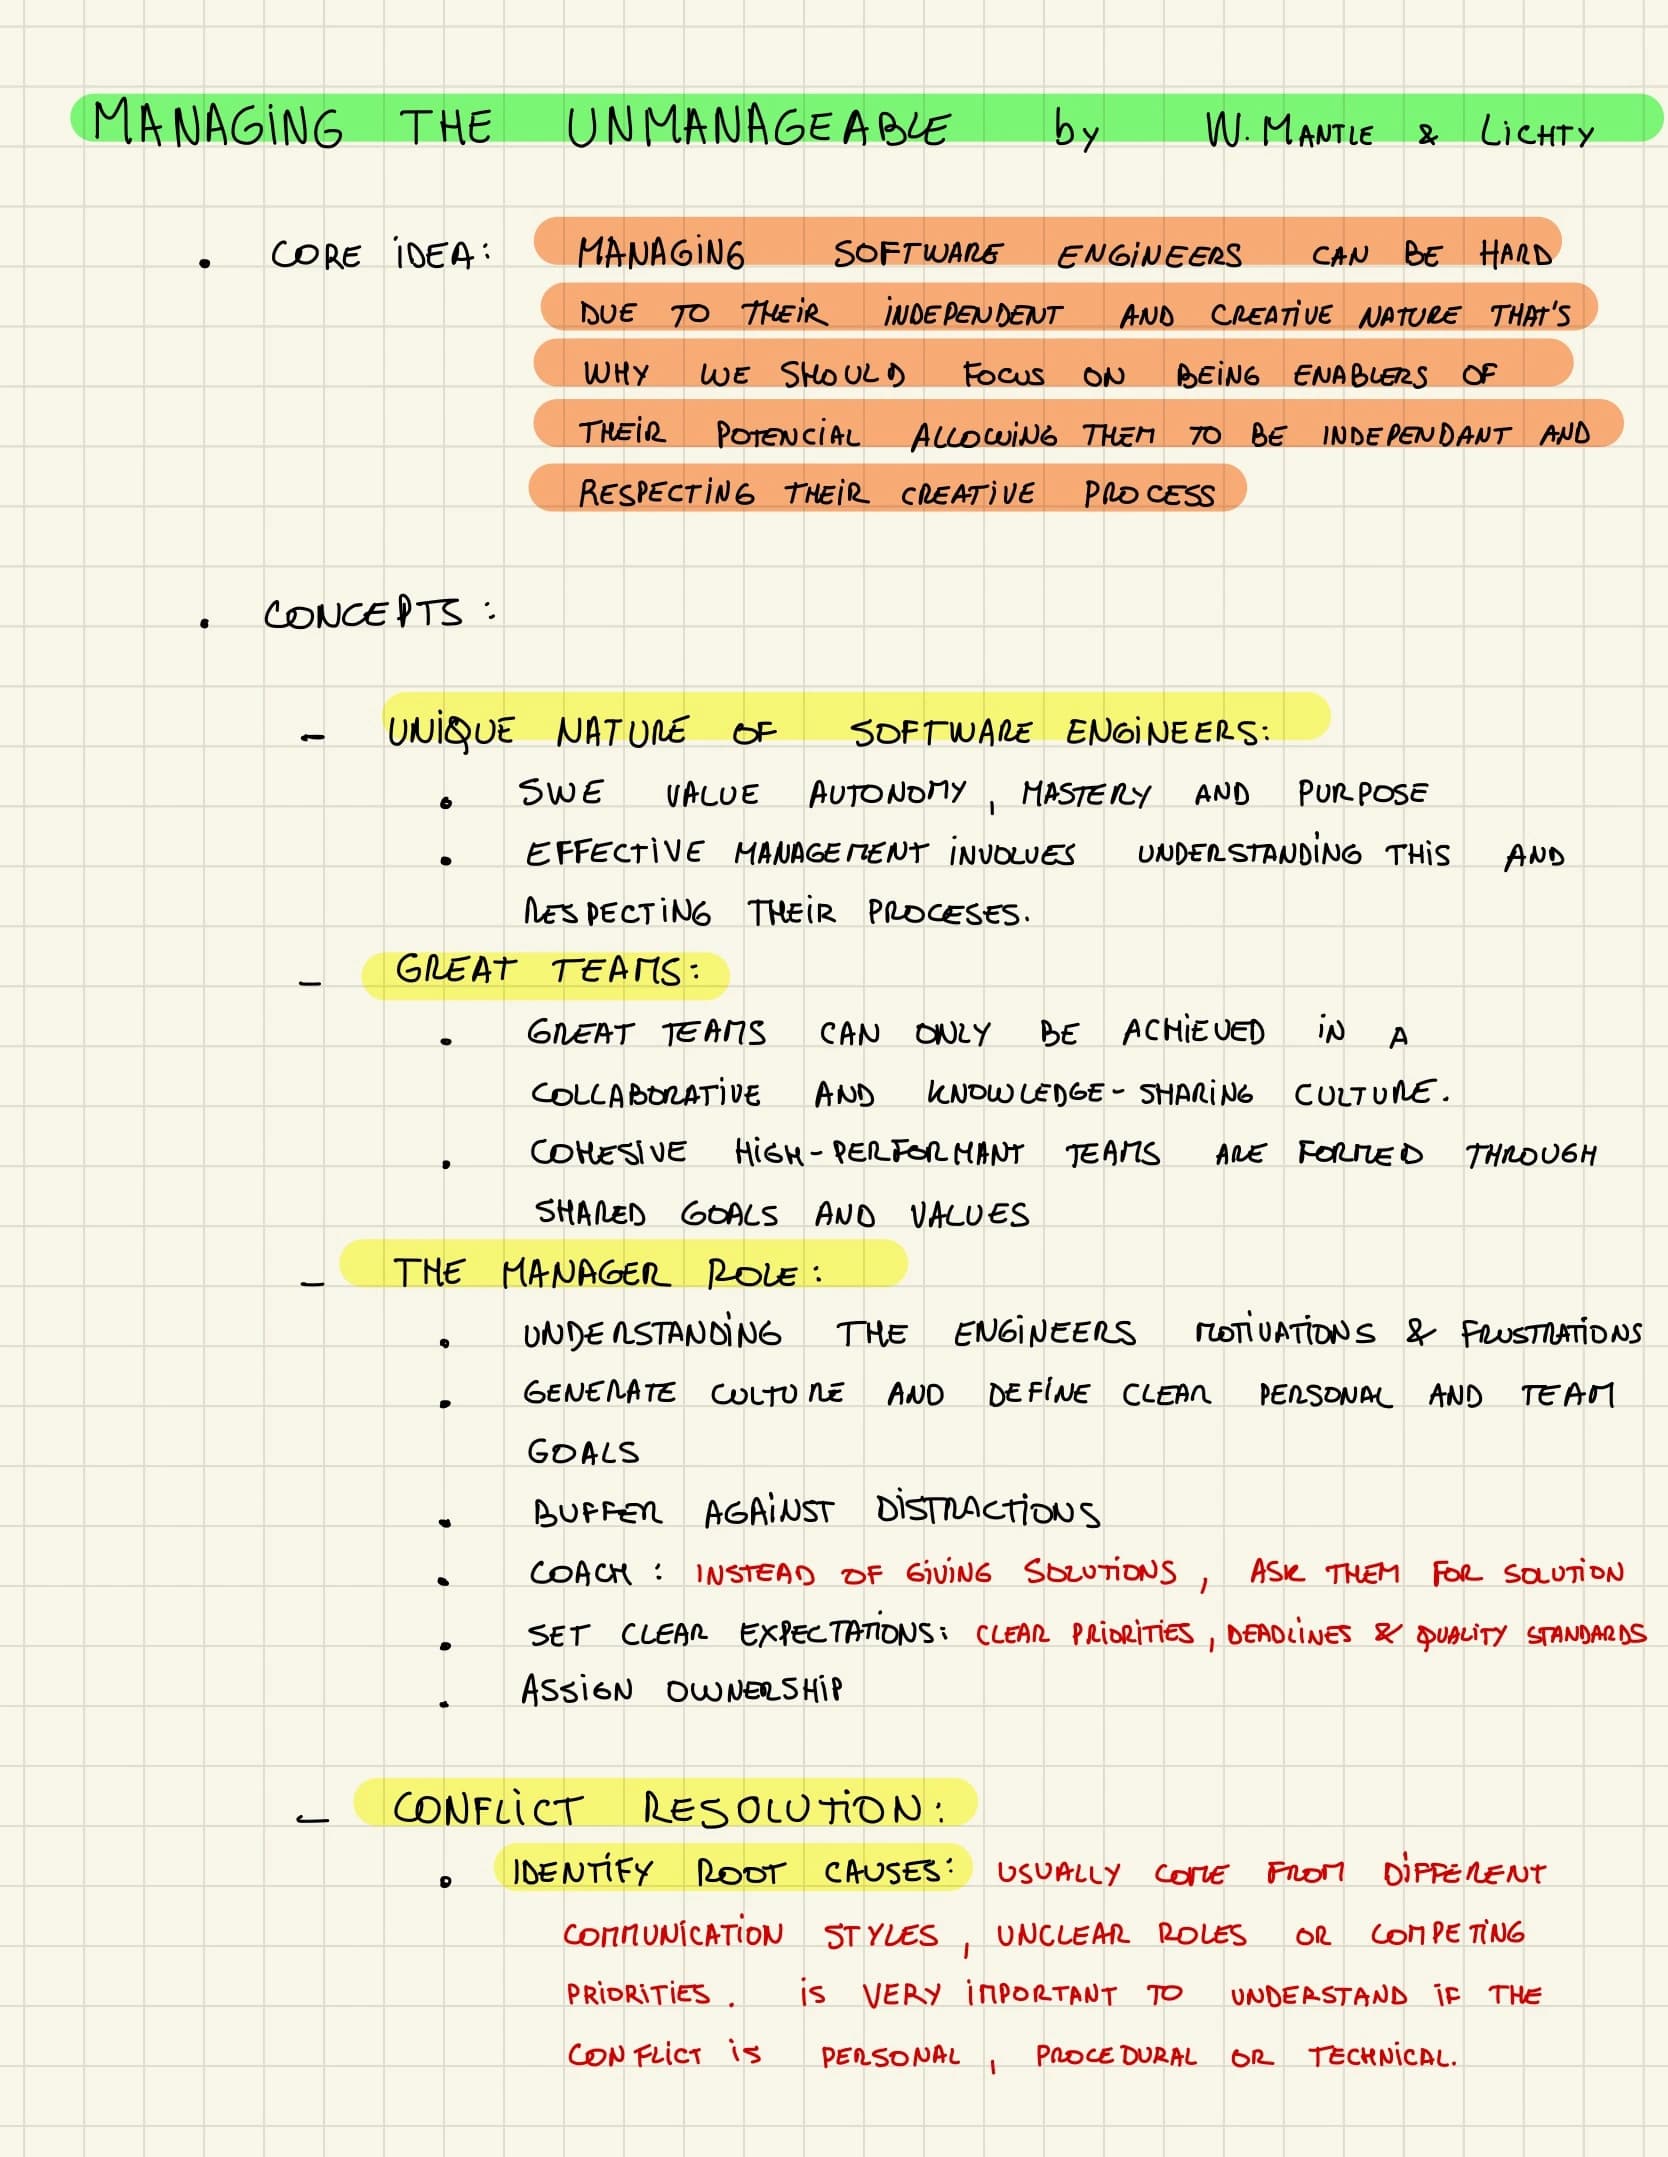 MANAGING THE UNMANAGEABLE by W. MANTLE & LICHTY
. CORE IDEA: MANAGING SOFTWARE ENGINEERS CAN BE HARD
DUE TO THEIR INDEPENDENT AND CREATIVE NATURE THAT'S
WHY WE SHOULD FOCUS ON BEING ENABLERS OF
THEIR POTENCIAL ALLOWING THEM TO BE INDEPENDANT AND
RESPECTING THEIR CREATIVE PROCESS
. CONCEPTS:
- UNIQUE NATURE OF SOFTWARE ENGINEERS:
. SWE VALUE AUTONOMY, MASTERY AND PURPOSE
. EFFECTIVE MANAGEMENT INVOLVES UNDERSTANDING THIS AND
RESPECTING THEIR PROCESES.
- GREAT TEAMS:
. GREAT TEAMS CAN ONLY BE ACHIEVED IN A
COLLABORATIVE AND KNOWLEDGE-SHARING CULTURE.
. COHESIVE HIGH-PERFORMANT TEAMS ARE FORMED THROUGH
SHARED GOALS AND VALUES
- THE MANAGER ROLE:
. UNDERSTANDING THE ENGINEERS MOTIVATIONS & FRUSTRATIONS
. GENERATE CULTURE AND DEFINE CLEAR PERSONAL AND TEAM
GOALS
. BUFFER AGAINST DISTRACTIONS
. COACH: INSTEAD OF GIVING SOLUTIONS, ASK THEM FOR SOLUTION
. SET CLEAR EXPECTATIONS: CLEAR PRIORITIES, DEADLINES & QUALITY STANDARDS
. ASSIGN OWNERSHIP
- CONFLICT RESOLUTION:
. IDENTIFY ROOT CAUSES: USUALLY COME FROM DIFFERENT
COMMUNICATION STYLES, UNCLEAR ROLES OR COMPETING
PRIORITIES. IS VERY IMPORTANT TO UNDERSTAND IF THE
CONFLICT IS PERSONAL, PROCEDURAL OR TECHNICAL.